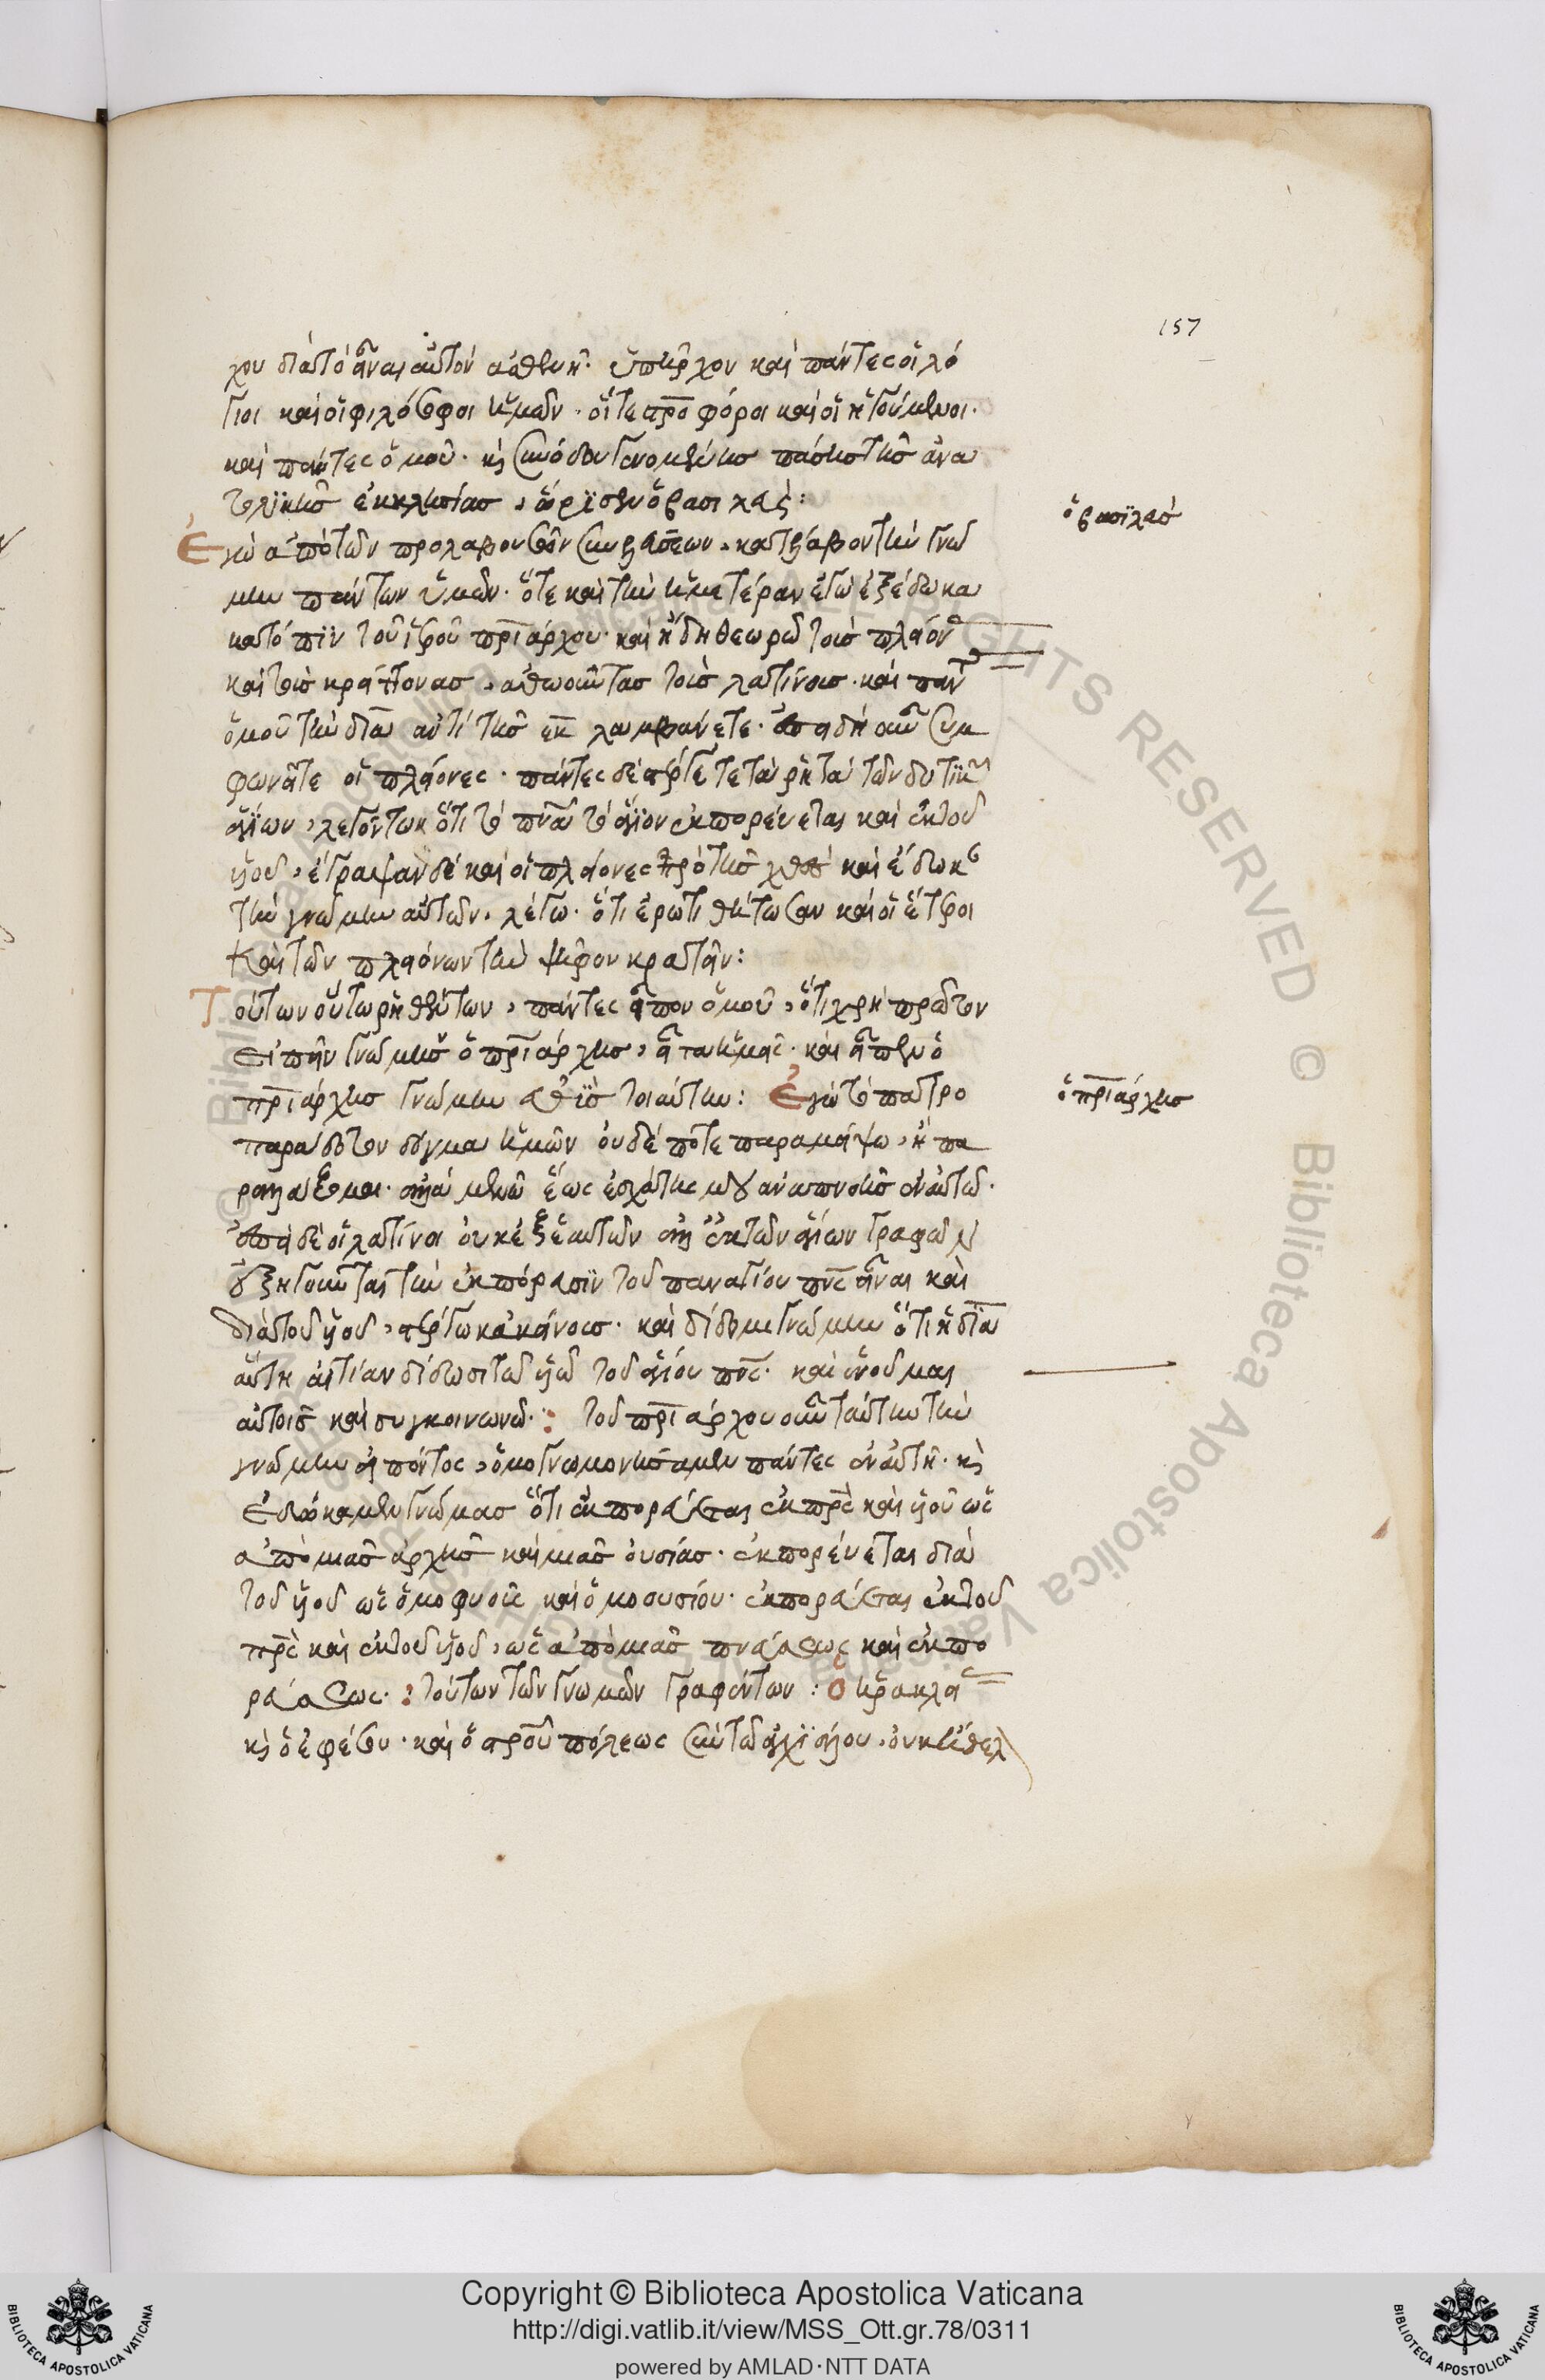 157
χου διὰ τὸ εἶναι αὐτὸν ἀσθενῆ· ὑπῆρχον καὶ πάντες οἱ λό
γιοι καὶ οἱ φιλόσοφοι ἡμῶν· οἵ τε πρō φόροι καὶ οἱ ἡγούμενοι·
καὶ πάντες ὁμοῦ· κ συνόδου γενομένης πάσης τῆς ἀνα
τολικῆς ἐκκλησίας, ὥρισεν ὁ βασιλεὺς:
ὁ βασιλεὺς
Ἐγὼ ἀπὸ τῶν προλαβουσῶν συνελεύσεων, κατέλαβον τὴν γνώ
μην πάντων ὑμῶν· ὅτε καὶ τὴν ἡμετέραν ἐγὼ ἐξέδωκα
κατόπιν τοῦ ἱεροῦ πρι̅άρχου· καὶ ἤδη θεωρῶ τοὺς πλείον
καὶ τοὺς κρείττονας, ἑνωθέντας τοῖς λατίνοις· καὶ παν
ὁμοῦ τὴν δια̅ ἀντὶ τῆς εκ̅ λαμβάνετε· ἐπειδὴ οὖν συμ
φωνεῖτε οἱ πλείονες· πάντες δὲ στέργετε τὰ ῥητὰ τῶν δυτικῶν
ἁγίων, λεγόντων ὅτι τὸ πνα̅ τὸ ἅγιον ἐκπορεύεται καὶ ἐκ τοῦ
υἱοῦ, ἔγραψαν δὲ καὶ οἱ πλείονες πρὸ τῆς χθὲς καὶ ἔδωκ
τὴν γνώμην αὐτῶν, λέγω· ὅτι ἐρωτηθήτωσαν καὶ οἱ ἕτεροι
καὶ τῶν πλειόνων τὴν ψῆφον κρατεῖν:
Τούτων οὕτω ῥηθέντων, πάντες εἶπον ὁμοῦ, ὅτι χρὴ πρῶτον
εἰπεῖν γνώμης ὁ πρι̅άρχης, εἶτα ἡμεῖς· καὶ εἶπεν ὁ
πρι̅άρχης γνώμην εὐθὺς τοιαύτην: Ἐγὼ τὸ πατρο
ὁ πρι̅άρχης
παράδοτον δόγμα ἡμῶν οὐδέποτε παραμείψω, ἢ πα
ραλλάξομαι· ἀλλὰ μενῶ ἕως ἐσχάτης μου ἀναπνοῆς ἐν αὐτῷ·
ἐπεὶ δὲ οἱ λατίνοι οὐκ ἐξ ἑαυτῶν ἀλλ' ἐκ τῶν ἁγίων γραφῶν
ἐξηγοῦνται τὴν ἐκπόρευσιν τοῦ παναγίου πνς̅ εἶναι καὶ
διὰ τοῦ υἱοῦ, στέργω κἀκείνοις· καὶ δίδωμι γνώμην ὅτι ἡ δια̅
αὕτη αἰτίαν δίδωσι τῷ υἱῷ τοῦ ἁγίου πνς̅· καὶ ἑνοῦμαι
αὐτοῖς καὶ συγκοινωνῶ: τοῦ πρι̅άρχου οὖν ταύτην τὴν
γνώμην εἰπόντος, ὁμογνωμονήσαμεν πάντες ἐν αὐτῇ· κ
ἐδώκαμεν γνώμας ὅτι ἐκπορεύεται ἐκ πρς̅ καὶ υἱοῦ ὡς
ἀπὸ μιᾶς ἀρχῆς καὶ μιᾶς οὐσίας· ἐκπορεύεται διὰ
τοῦ υἱοῦ ὡς ὁμοφυοῦς καὶ ὁμοουσίου· ἐκπορεύεται ἐκ τοῦ
πρς̅ καὶ ἐκ τοῦ υἱοῦ, ὡς ἀπὸ μιᾶς πνεύσεως καὶ ἐκπο
ρεύσεως: τούτων τῶν γνωμῶν γραφέντων: ὁ ἡρακλεί
κ ὁ ἐφέσου· καὶ ὁ σταυρουπόλεως σὺν τῷ ἀγχιάλου, οὐκ ἤθελ
Copyright © Biblioteca Apostolica Vaticana
http://digi.vatlib.it/view/MSS_Ott.gr.78/0311
powered by AMLAD·NTT DATA
BIBLIOTECA APOSTOLICA VATICANA
BIBLIOTECA APOSTOLICA VATICANA